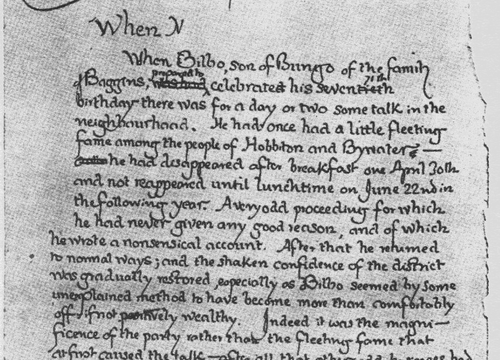 When N
When Bilbo, son of Bungo of the family
of Baggins, prepared to celebrated his seventieth
birthday there was for a day or two some talk in the
neighbourhood. He had once had a little fleeting
fame among the people of Hobbiton and Bywater —
he had disappeared after breakfast one April 30th
and not reappeared until lunchtime on June 22nd in
the following year. A very odd proceeding for which
he had never given any good reason, and of which
he wrote a nonsensical account. After that he returned
to normal ways; and the shaken confidence of the district
was gradually restored, especially as Bilbo seemed by some
unexplained method to have become more than comfortably
off, if not positively wealthy. Indeed it was the magni-
ficence of the party rather than the fleeting fame that
at first caused the talk — after all that